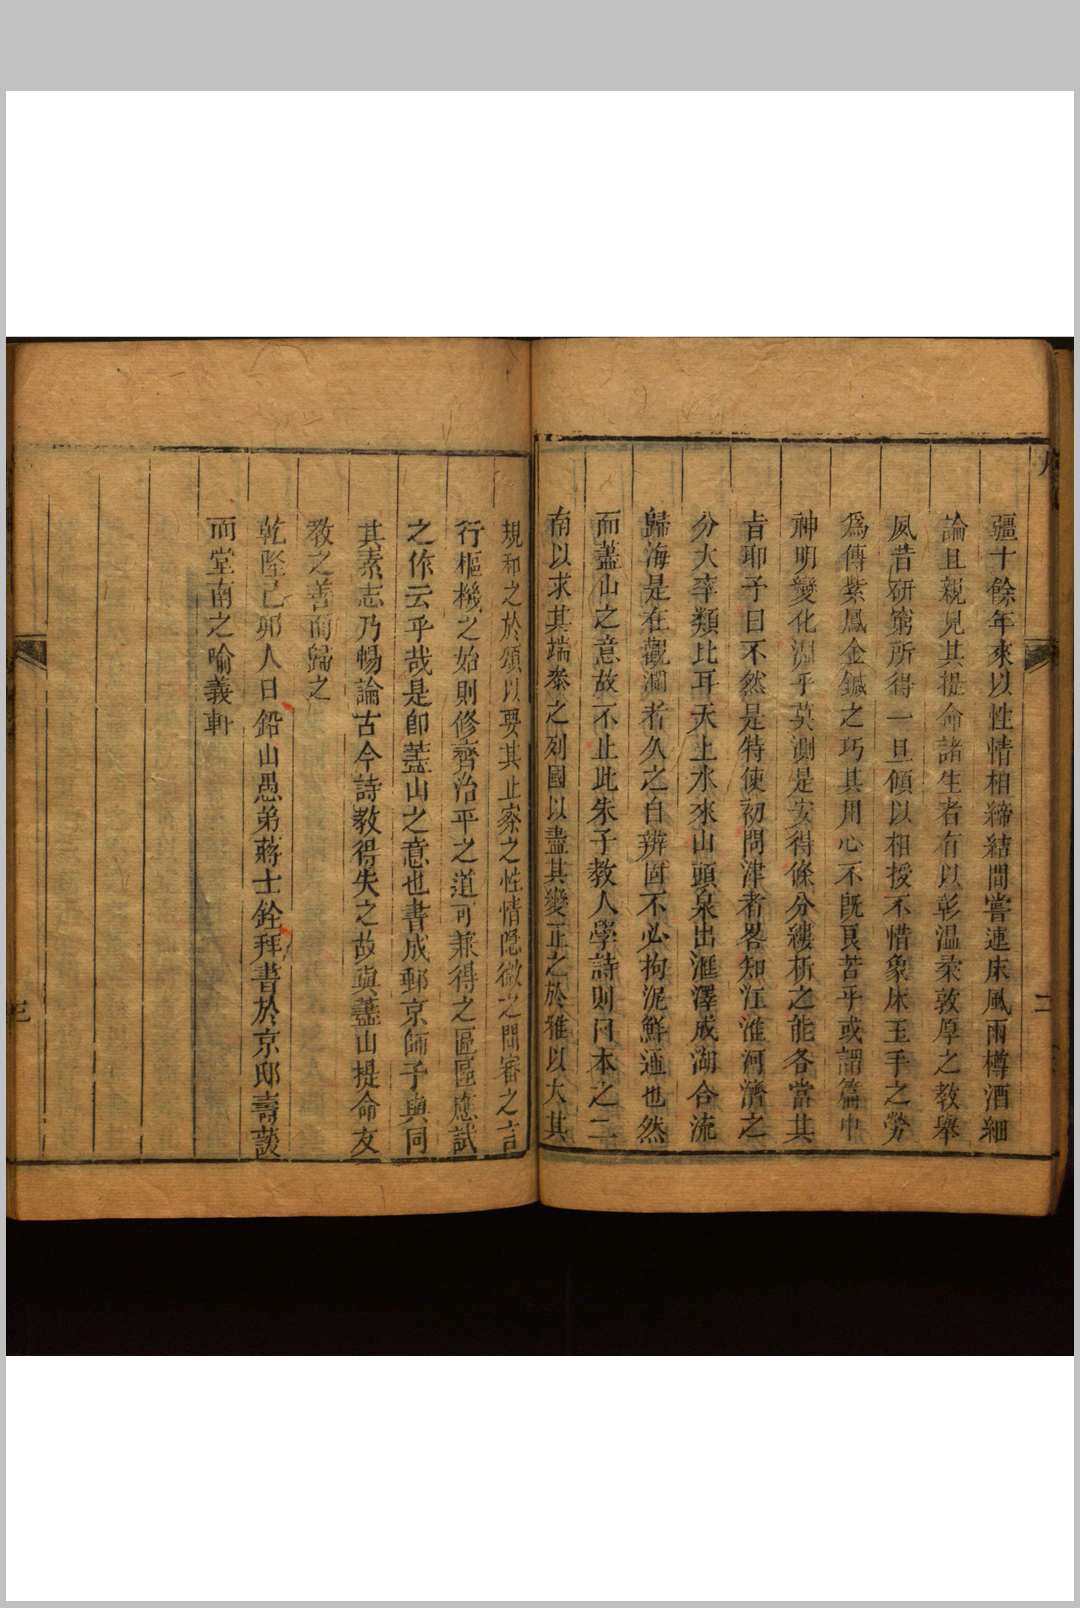 序
二
疆十餘年來以性情相締結間嘗連床風雨樽酒細
論且親見其提命諸生者有以彰温柔敦厚之教舉
夙昔硏窮所得一旦傾以相授不惜象床玉手之勞
爲傳紫鳳金鍼之巧其用心不旣良苦乎或謂篇中
神明變化淵乎莫測是安得條分縷析之能各當其
旨耶予曰不然是特使初問津者畧知江淮河濟之
分大率類此耳天上水來山頭泉出滙澤成湖合流
歸海是在觀瀾者久之自辨固不必拘泥鮮通也然
而藎山之意故不止此朱子教人學詩則曰本之二
南以求其端叅之列國以盡其變正之於雅以大其
規和之於頌以要其止察之性情隱微之間審之言
行樞機之始則修齊治平之道可兼得之區區應試
之作云乎哉是卽藎山之意也書成郵京師予與同
其素志乃暢論古今詩教得失之故與藎山提命友
教之善而歸之
乾隆己卯人日鉛山愚弟蔣士銓拜書於京邸壽諼
而堂南之喻義軒
三